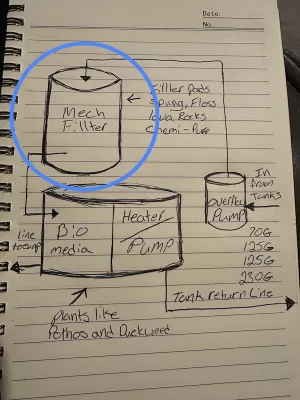 Date.
No.
Mech
Fillter
Fillter Pads
Spung, Floss
lava Rocks
Chemi-Pure
In
from
Tanks
overflow
Pump
Bio
media
Heater
Pump
line
to sump
70G
125G
125G
230G
Tank return Line
plants like
Pothos and Duckweed